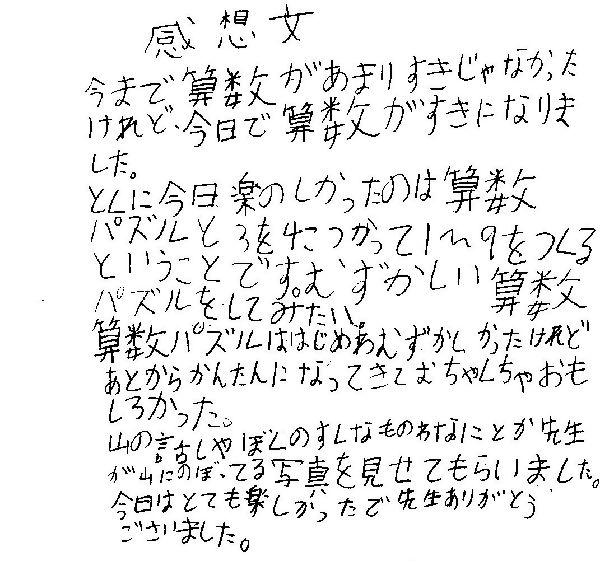 感想文
今まで算数があまりすきじゃなかった
けれど、今日で算数がすきになりま
した。
とくに今日楽のしかったのは算数
パズルと3を4こつかって1〜9をつくる
ということです。むずかしい算数
パズルをしてみたい。
算数パズルははじめあむずかしかったけれど
あとからかんたんになってきてむちゃくちゃおも
しろかった。
山の話しやぼくのすしなものわなにとか先生
が山にのぼってる写真を見せてもらいました。
今日はとても楽しかったで先生ありがとう
ございました。